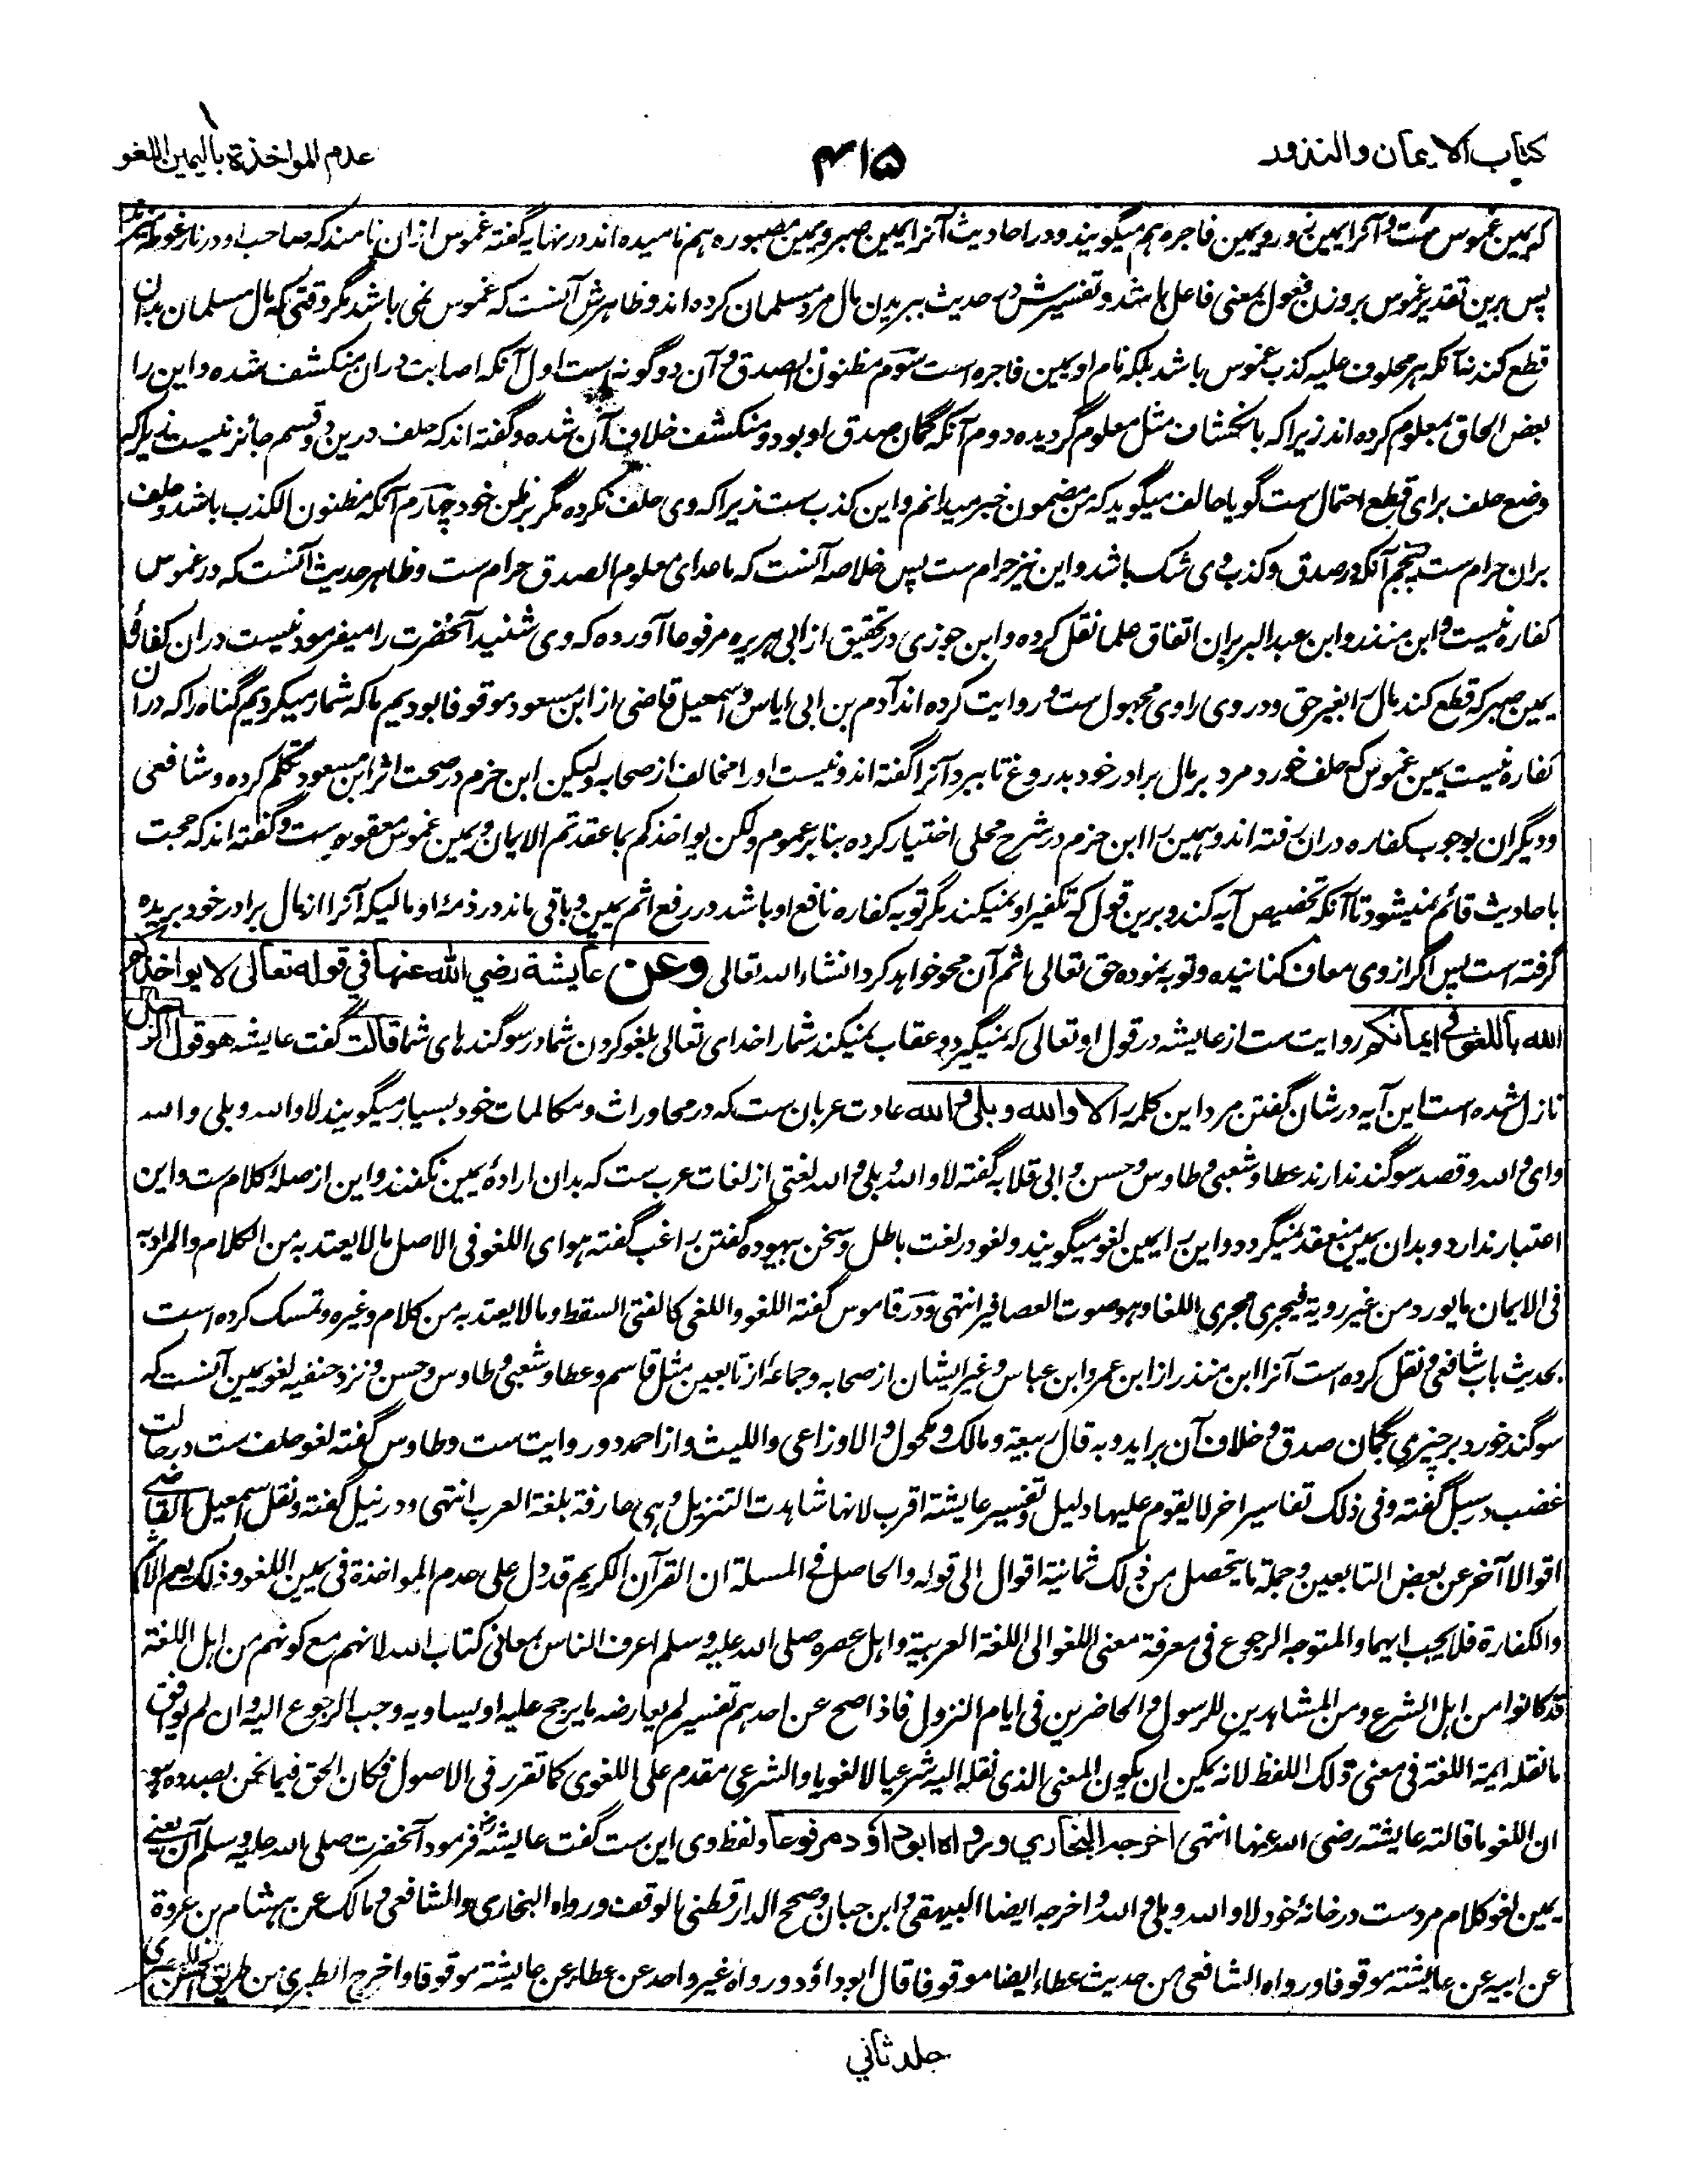 كتاب الايمان والنذور
۴۱۵
عدم المواخذة باليمين اللغو
که یمین غموس ست و آنرا یمین زور و یمین فاجره هم میگویند و در احادیث آنرا یمین صبر و یمین مصبوره هم نامیده اند در نهایه گفته غموس ازان نامند که صاحب او در نار غوطه میزند
پس برین تقدیر غموس بروزن فعول بمعنی فاعل باشد و تفسیرش در حدیث ببریدن مال مرد مسلمان کرده اند و ظاهرش آنست که غموس نمی باشد مگر وقتی که مال مسلمان بدان
قطع کند نه آنکه هر محلوف علیه کذب غموس باشد بلکه نام او یمین فاجره است سوم مظنون الصدق و آن دو گونه است اول آنکه اصابت دران منکشف شده و این را
بعض الحاق بمعلوم کرده اند زیرا که بانکشاف مثل معلوم گردیده دوم آنکه گمان صدق او بود و منکشف خلاف آن شده و گفته اند که حلف درین دو قسم جائز نیست زیراکه
وضع حلف برای قطع احتمال ست گویا حالف میگوید که من مضمون خبر میدانم و این کذب ست زیرا که وی حلف نکرده مگر بر ظن خود چهارم آنکه مظنون الکذب باشد و حلف
بران حرام ست پنجم آنکه در صدق و کذب وی شک باشد و این نیز حرام ست پس خلاصه آنست که ماعدای معلوم الصدق حرام ست و ظاهر حدیث آنست که در غموس
کفاره نیست و ابن منذر و ابن عبد البر بران اتفاق علما نقل کرده و ابن جوزی در تحقیق از ابی هریره مرفوعا آورده که وی شنید آنحضرت را میفرمود نیست دران کفاره
یمین صبر که قطع کند مال را بغیر حق و در وی راوی مجهول ست و روایت کرده اند آدم بن ابی ایاس و اسمعیل قاضی از ابن مسعود موقوفا بودیم ما که شمار میکردیم گناه را که دران
کفاره نیست یمین غموس که حلف خورد مرد بر مال برادر خود بدروغ تا ببرد آنرا گفته اند و نیست او را مخالف از صحابه ولیکن ابن حزم در صحت اثر ابن مسعود تکلم کرده و شافعی
و دیگران بوجوب کفاره دران رفته اند و همین را ابن حزم در شرح محلی اختیار کرده بنا بر عموم ولکن یواخذکم بما عقدتم الایمان و یمین غموس معقود ست و گفته اند که حجت
باحادیث قائم نمیشود تا آنکه تخصیص آیه کند و برین قول که تکفیر او نمیکند مگر توبه کفاره نافع او باشد در رفع اثم یمین و باقی ماند در ذمه او مالیکه آنرا از مال برادر خود بریده
گرفته است پس اگر از وی معاف کنانیده و توبه نموده حق تعالی اثم آن محو خواهد کرد انشاء الله تعالی وعن عايشة رضي الله عنها في قوله تعالى لا يواخذكم
الله باللغو في ايمانكم روایت ست از عایشه در قول او تعالی که نمیگیرد و عقاب نمیکند شما را خدای تعالی بلغو کردن شما در سوگندهای شما قالت گفت عایشه هو قول الرجل
نازل شده است این آیه در شان گفتن مرد این کلمه را لا والله و بلى والله عادت عربان ست که در محاورات و مکالمات خود بسیار میگویند لا والله و بلی والله
وای والله و قصد سوگند ندارند عطا و شعبی و طاوس و حسن و ابی قلابه گفته لا والله و بلی والله لغتی از لغات عرب ست که بدان اراده یمین نکنند و این از صله کلام ست و این
اعتبار ندارد و بدان یمین منعقد نمیگردد و این را یمین لغو میگویند و لغو در لغت باطل و سخن بیهوده گفتن راغب گفته هو ای اللغو فی الاصل ما لا یعتد به من الکلام والمراد به
فی الایمان ما یورد من غیر رویة فیجری مجری اللغا وهو صوت العصافیر انتهی و در قاموس گفته اللغو واللغی کالفتی السقط وما لا یعتد به من کلام وغیره و تمسک کرده است
بحدیث باب شافعی و نقل کرده است آنرا ابن منذر از ابن عمر و ابن عباس و غیر ایشان از صحابه و جماعه از تابعین مثل قاسم و عطا و شعبی و طاوس و حسن و نزد حنفیه لغو یمین آنست که
سوگند خورد بر چیزی بگمان صدق و خلاف آن براید و به قال ربیعة ومالک ومکحول والاوزاعی واللیث و از احمد دو روایت ست و طاوس گفته لغو حلف ست در حالت
غضب در سبل گفته وفی ذلک تفاسیر اخر لا یقوم علیها دلیل وتفسیر عایشة اقرب لانها شاهدت التنزیل وهی عارفة بلغة العرب انتهی و در نیل گفته ونقل اسمعیل القاضی
اقوالا آخر عن بعض التابعین وجملة ما یتحصل من ذلک ثمانیة اقوال الی قوله والحاصل فی المسلة ان القرآن الکریم قد دل علی عدم المواخذة فی یمین اللغو وذلک یعم الاثم
والکفارة فلا یجب ایهما والمتوجه الرجوع فی معرفة معنی اللغو الی اللغة العربیة واهل عصره صلی الله علیه وسلم اعرف الناس بمعانی کتاب الله لانهم مع کونهم من اهل اللغة
قد کانوا من اهل الشرع ومن المشاهدین للرسول والحاضرین فی ایام النزول فاذا صح عن احدهم تفسیر لم یعارضه ما یرجح علیه او یساویه وجب الرجوع الیه وان لم یوافق
ما نقله ایمة اللغة فی معنی ذلک اللفظ لانه یمکن ان یکون المعنی الذی نقله الیه شرعیا لا لغویا والشرعی مقدم علی اللغوی کما تقرر فی الاصول فکان الحق فیما نحن بصدده هو
ان اللغو ما قالته عایشة رضی الله عنها انتهی اخرجه البخاري ورواه ابو داؤد مرفوعا ولفظ وی این ست گفت عایشه رض فرمود آنحضرت صلی الله علیه وسلم آن یعنی
یمین لغو کلام مردست در خانه خود لا والله وبلی والله واخرجه ایضا البیهقی وابن حبان وصحح الدارقطنی الوقف ورواه البخاری والشافعی ومالک عن هشام بن عروة
عن ابیه عن عایشة موقوفا ورواه الشافعی من حدیث عطاء ایضا موقوفا قال ابو داؤد ورواه غیر واحد عن عطاء عن عایشة موقوفا واخرج الطبری من طریق الحسن البصری
جلد ثاني